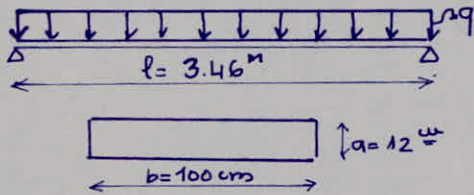 q
l = 3.46 m
a = 12 cm
b = 100 cm